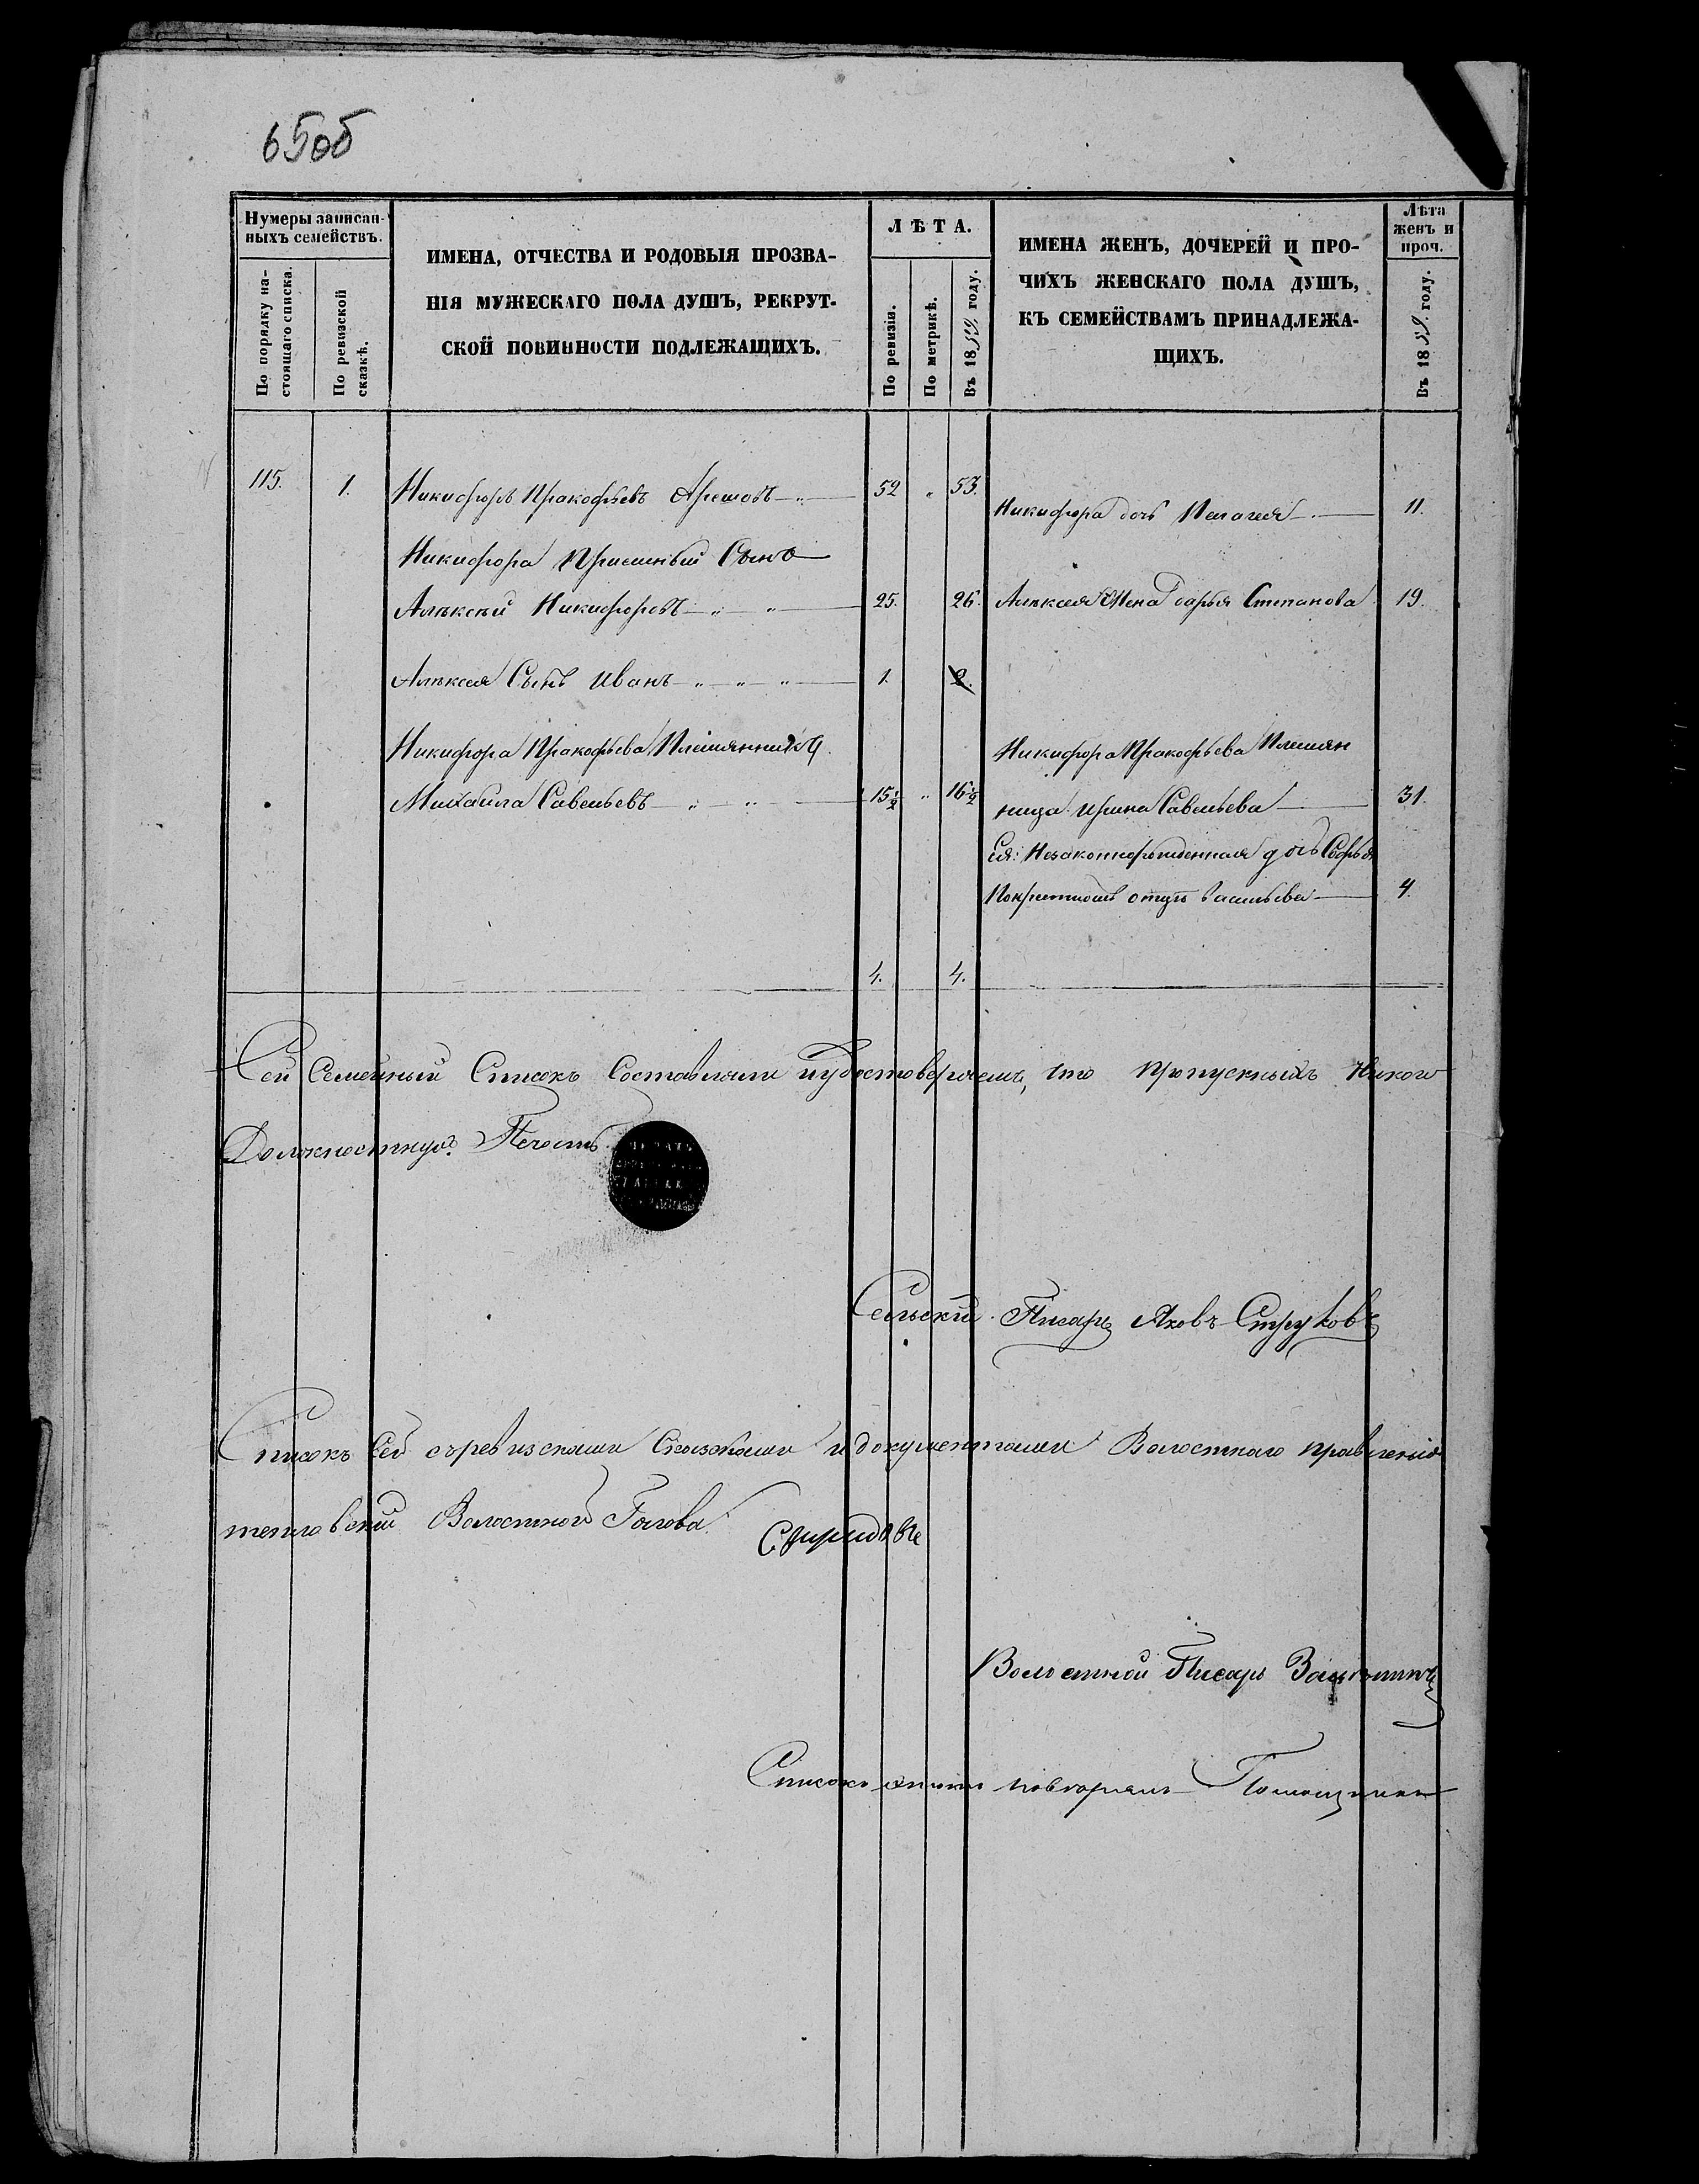 65об
Нумеры записан-
ныхъ семействъ.
По порядку на-
стоящаго списка.
По ревизской
сказкѣ.
ИМЕНА, ОТЧЕСТВА И РОДОВЫЯ ПРОЗВА-
НІЯ МУЖЕСКАГО ПОЛА ДУШЪ, РЕКРУТ-
СКОЙ ПОВИННОСТИ ПОДЛЕЖАЩИХЪ.
ЛѢТА.
По ревизіи.
По метрикѣ.
Въ 1859 году.
ИМЕНА ЖЕНЪ, ДОЧЕРЕЙ И ПРО-
ЧИХЪ ЖЕНСКАГО ПОЛА ДУШЪ,
КЪ СЕМЕЙСТВАМЪ ПРИНАДЛЕЖА-
ЩИХЪ.
Лѣта
женъ и
проч.
Въ 1859 году.
115. 1. Никифоръ Пракофьевъ 52 " 53.
Никифора дочь Пелагея 11.
Никифора Приемный Сынъ
Алѣксей Никифоровъ 25. 26. Алѣксея Жена дарья Степанова 19.
Алѣксея Сынъ Иванъ 1. 2.
Никифора Пракофьева Племянникъ Никифора Пракофьева Племян
Михайла Савельевъ 15½ " 16½ ница ирина Савельева 31.
Ея: Незаконнорожденная дочь Софья
Покрестному отцу Васильева 4.
4. 4.
Сей Семейный Списокъ Составляли иудостоверяемъ, что пропускныхъ Никого
Должностную Печать
ПЕЧАТЬ
Сельский Писарь Яковъ Струковъ
Списокъ Сей съревизскими Сказками идокументами Волостнаго правления
Волостной Голова Свиридовъ
Волостной Писарь
Списокъ повторялъ Помощникъ